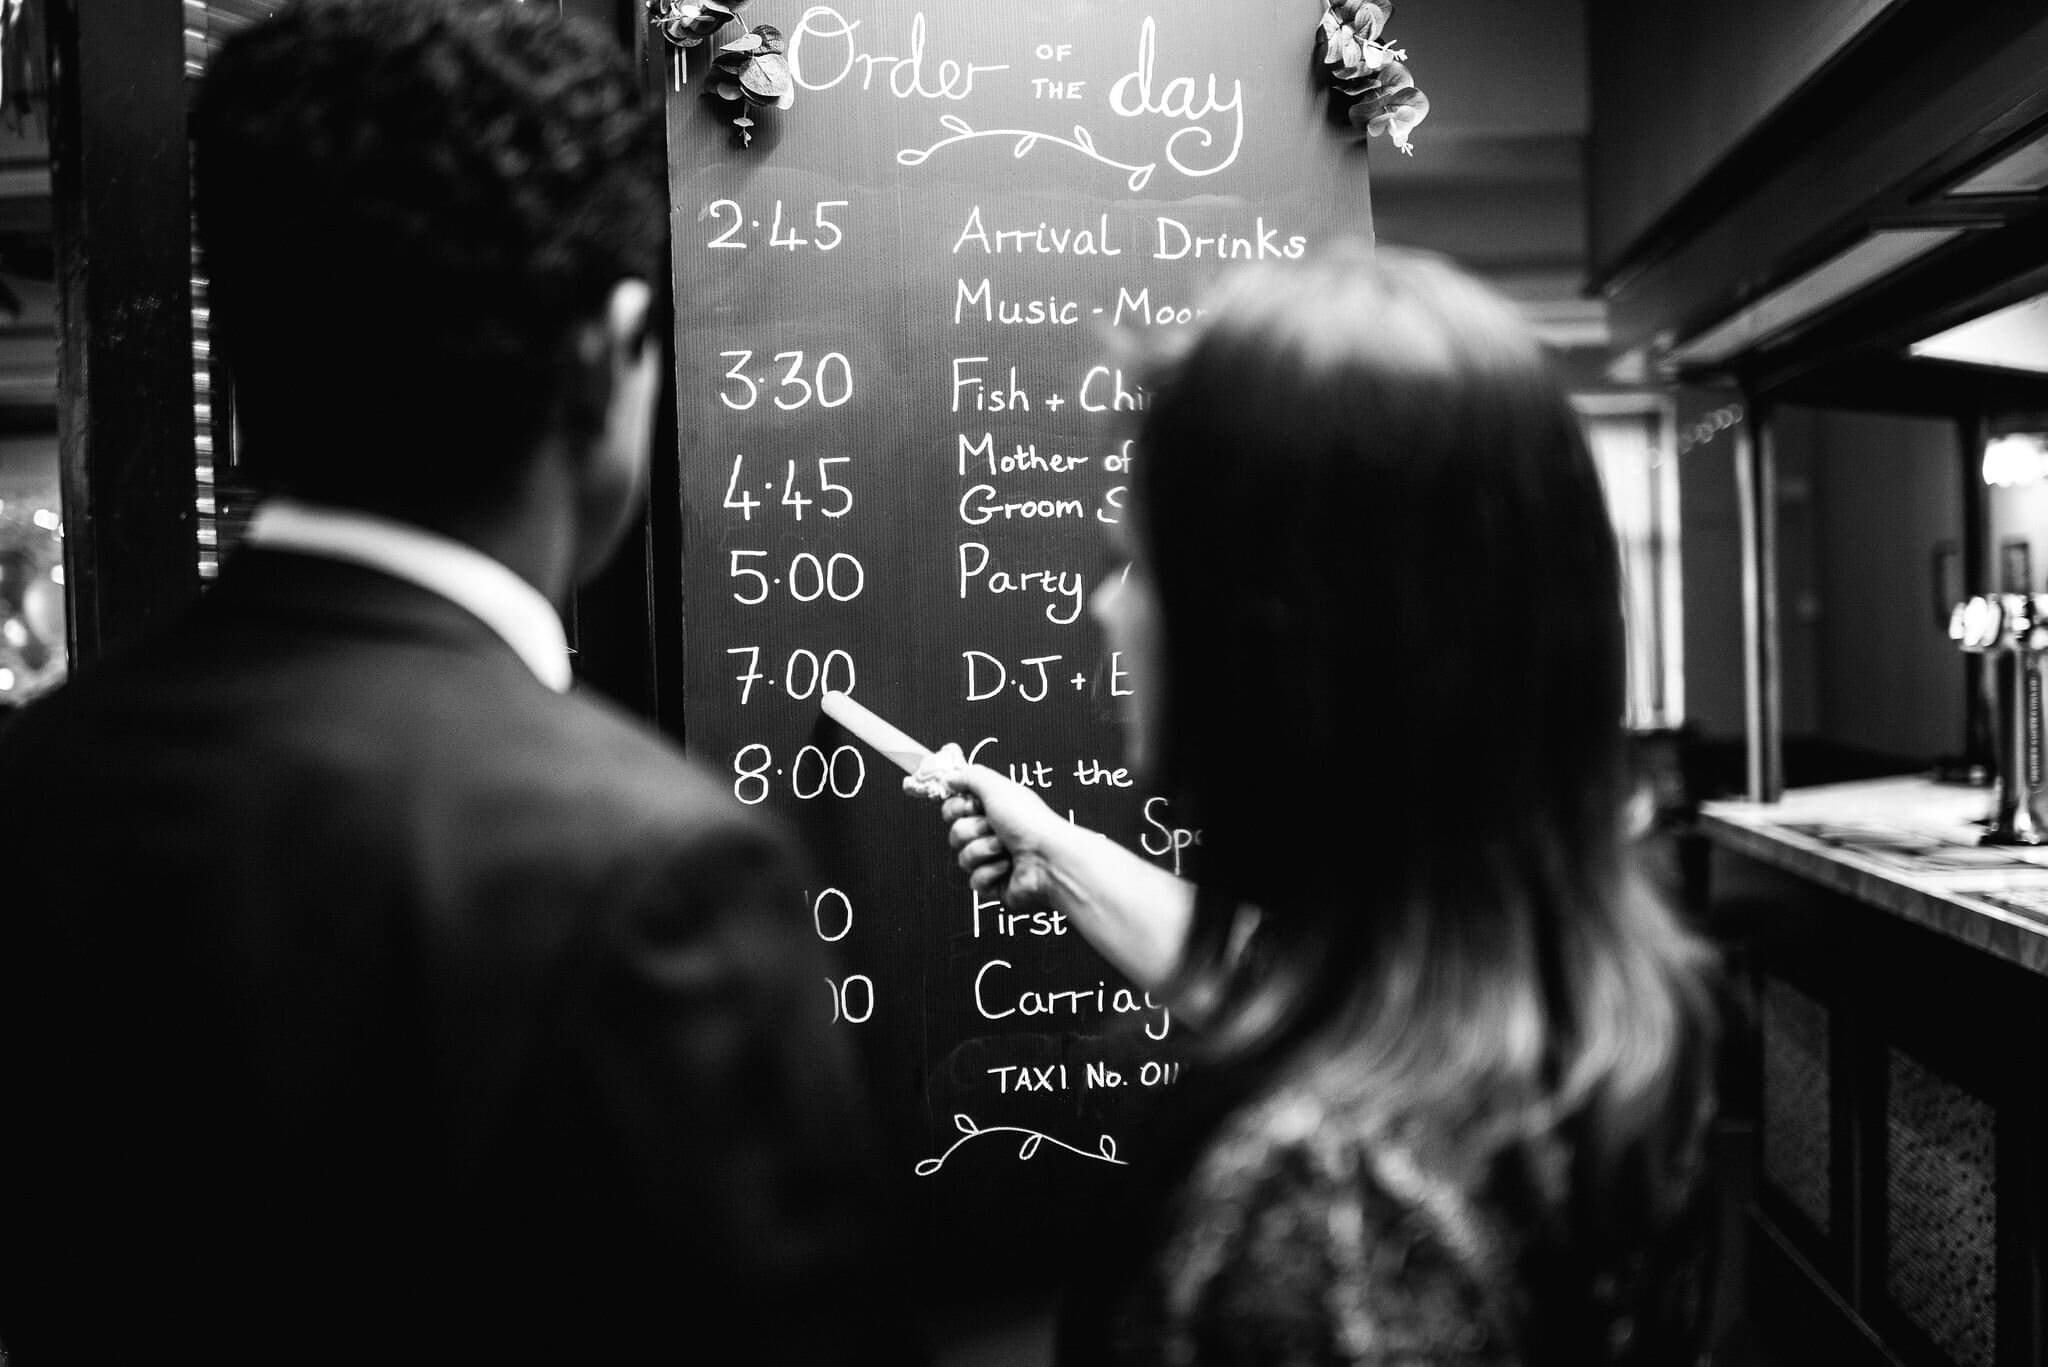 Order OF THE day
2.45 Arrival Drinks
Music - Moo
3.30 Fish + Chi
4.45 Mother of
Groom S
5.00 Party
7.00 D.J + E
8.00 Cut the
Spe
0 First
00 Carriag
TAXI No. 011